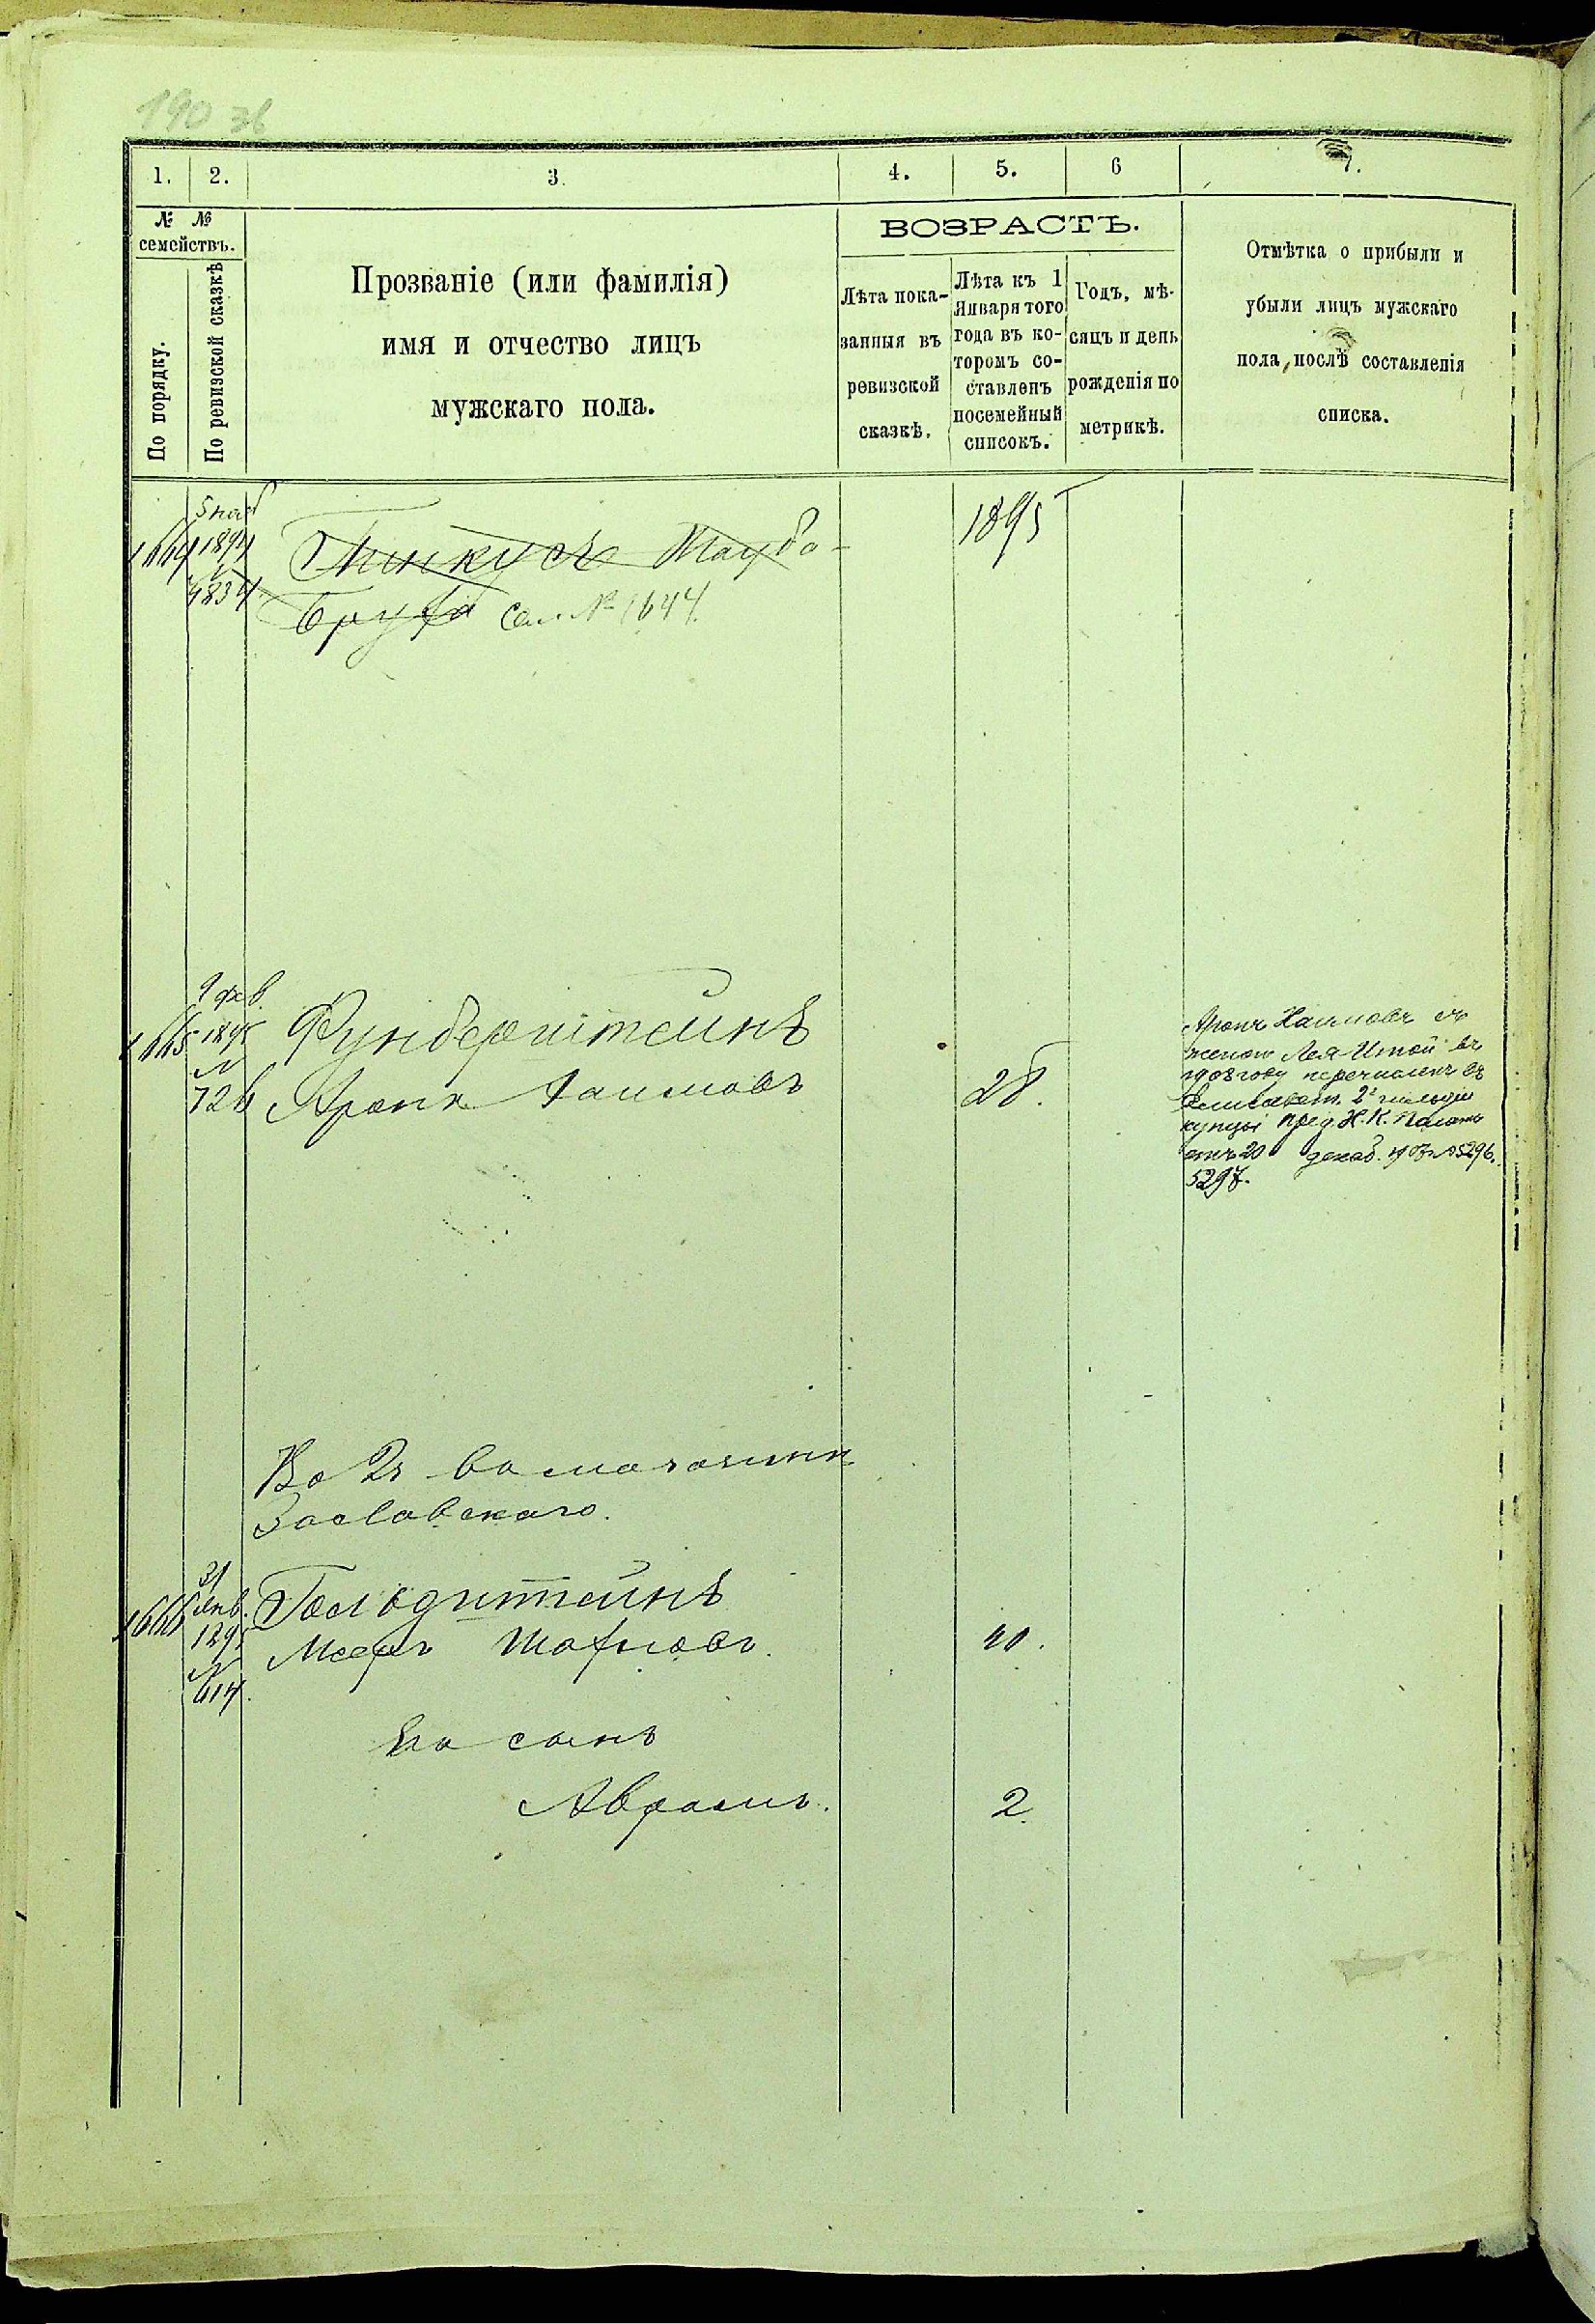 190 зв
1. 2. 3. 4. 5. 6 7.
№ №
семействъ.
По порядку.
По ревизской сказкѣ
Прозваніе (или фамилія)
имя и отчество лицъ
мужскаго пола.
ВОЗРАСТЪ.
Лѣта пока-
занныя въ
ревизской
сказкѣ.
Лѣта къ 1
Января того
года въ ко-
торомъ со-
ставленъ
посемейный
списокъ.
Годъ, мѣ-
сяцъ и день
рожденія по
метрикѣ.
Отмѣтка о прибыли и
убыли лицъ мужскаго
пола, послѣ составленія
списка.
1895
1664 1894
4834
Пинкусъ
сем. № 1644.
9 фев
1665 1895
№
726
Фундерштейнъ
Аронъ Хаимовъ
28.
Аронъ Хаимовъ съ
женою Лея Итой въ
1908 году перечисленъ въ
2й гильдіи
купцы пред. К. К. Палаты
отъ 20 декаб. № 5296.
5297.
Заславскаго.
31
1666 Янв.
1895
№
614.
Гольдштейнъ
Мееръ
40.
Его сынъ
Аврамъ.
2.